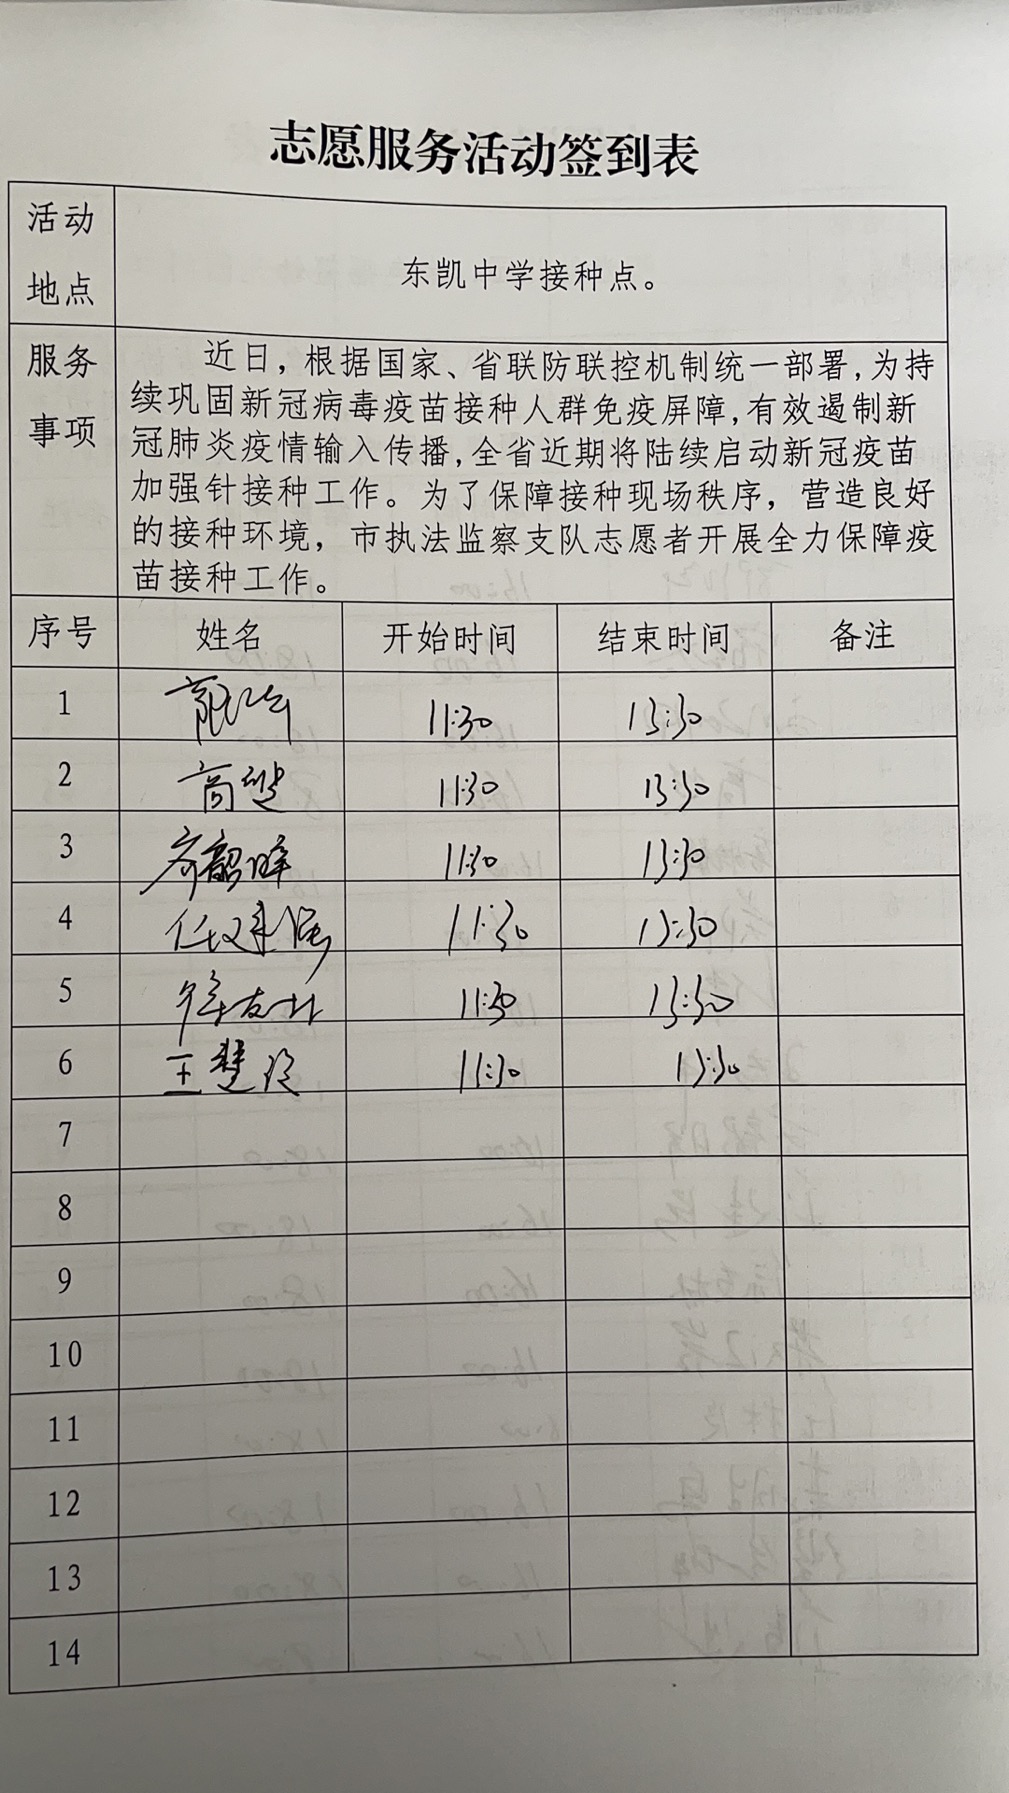 志愿服务活动签到表
活动地点
东凯中学接种点。
服务事项
近日，根据国家、省联防联控机制统一部署，为持
续巩固新冠病毒疫苗接种人群免疫屏障，有效遏制新
冠肺炎疫情输入传播，全省近期将陆续启动新冠疫苗
加强针接种工作。为了保障接种现场秩序，营造良好
的接种环境，市执法监察支队志愿者开展全力保障疫
苗接种工作。
序号 姓名 开始时间 结束时间 备注
1 11:30 13:30
2 11:30 13:30
3 齐韶晖 11:30 13:30
4 11:30 13:30
5 11:30 13:30
6 王楚玲 11:30 13:30
7
8
9
10
11
12
13
14